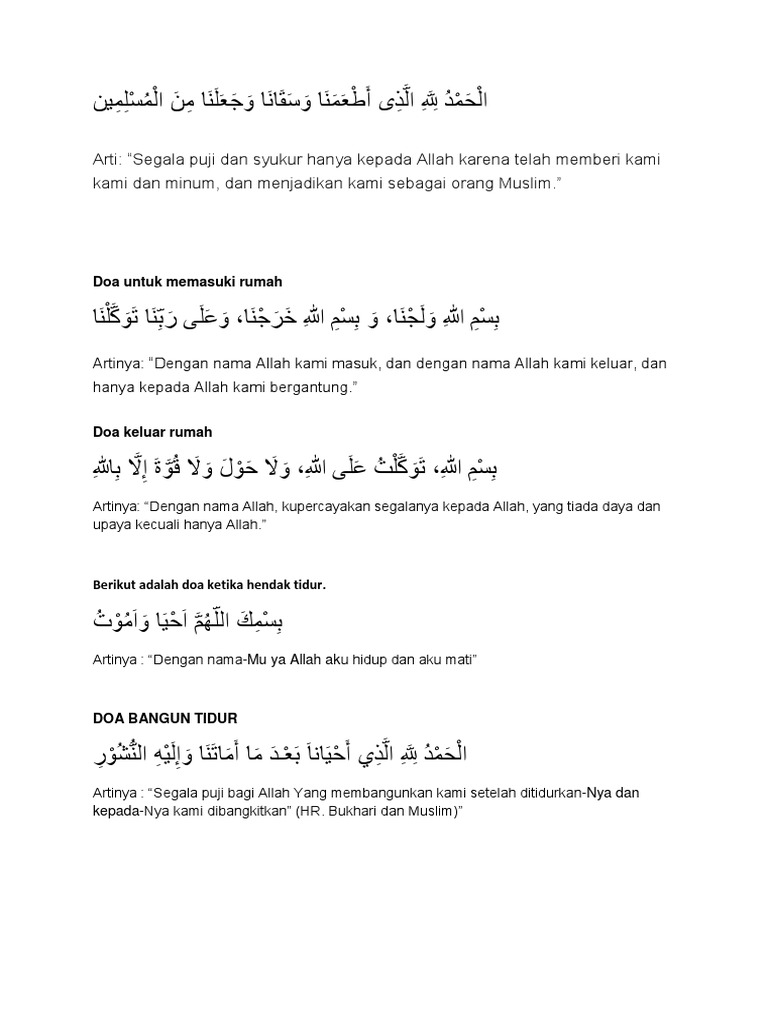 الْحَمْدُ لِلَّهِ الَّذِى أَطْعَمَنَا وَسَقَانَا وَجَعَلَنَا مِنَ الْمُسْلِمِين
Arti: “Segala puji dan syukur hanya kepada Allah karena telah memberi kami
kami dan minum, dan menjadikan kami sebagai orang Muslim.”
Doa untuk memasuki rumah
بِسْمِ اللهِ وَلَجْنَا، وَ بِسْمِ اللهِ خَرَجْنَا، وَعَلَى رَبِّنَا تَوَكَّلْنَا
Artinya: “Dengan nama Allah kami masuk, dan dengan nama Allah kami keluar, dan
hanya kepada Allah kami bergantung.”
Doa keluar rumah
بِسْمِ اللهِ، تَوَكَّلْتُ عَلَى اللهِ، وَلَا حَوْلَ وَلَا قُوَّةَ إِلَّا بِاللهِ
Artinya: “Dengan nama Allah, kupercayakan segalanya kepada Allah, yang tiada daya dan
upaya kecuali hanya Allah.”
Berikut adalah doa ketika hendak tidur.
بِسْمِكَ اللّٰهُمَّ اَحْيَا وَاَمُوْتُ
Artinya : “Dengan nama-Mu ya Allah aku hidup dan aku mati”
DOA BANGUN TIDUR
الْحَمْدُ لِلَّهِ الَّذِي أَحْيَاناَ بَعْدَ مَا أَمَاتَنَا وَإِلَيْهِ النُّشُوْرِ
Artinya : “Segala puji bagi Allah Yang membangunkan kami setelah ditidurkan-Nya dan
kepada-Nya kami dibangkitkan” (HR. Bukhari dan Muslim)”